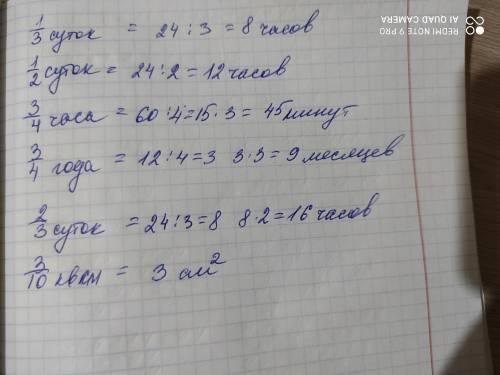 1/3 суток = 24 : 3 = 8 часов
1/2 суток = 24 : 2 = 12 часов
3/4 часа = 60 : 4 = 15 · 3 = 45 минут
3/4 года = 12 : 4 = 3 3 · 3 = 9 месяцев
2/3 суток = 24 : 3 = 8 8 · 2 = 16 часов
3/10 кв км = 3 см²
REDMI NOTE 9 PRO
AI QUAD CAMERA